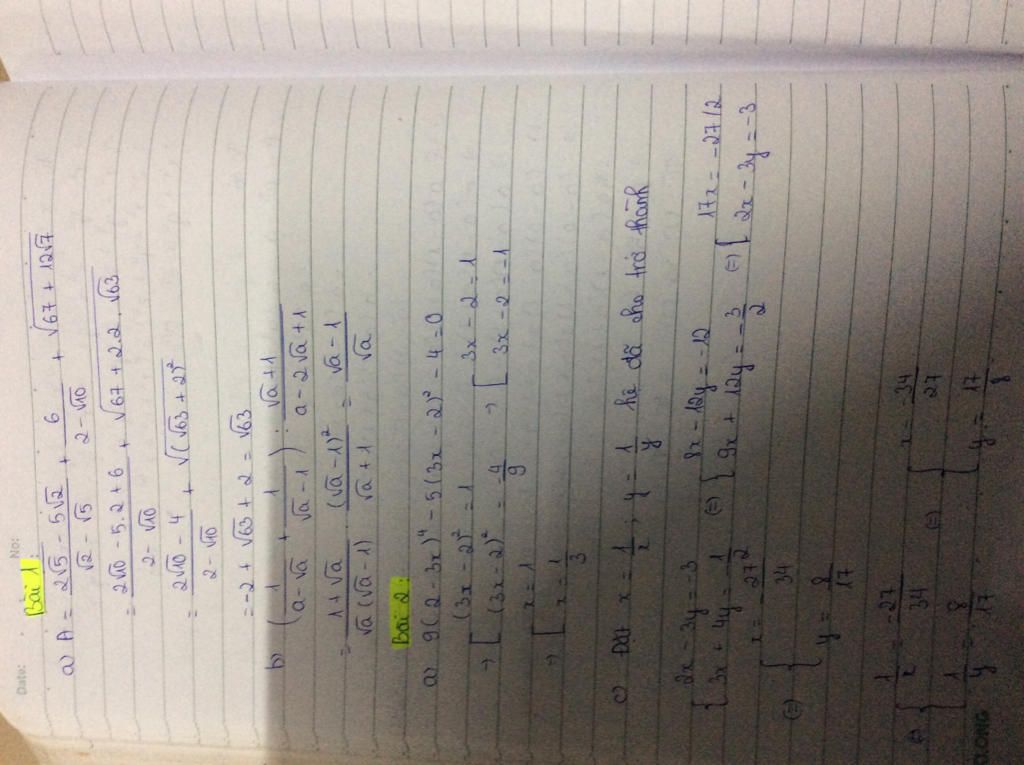 Date: No:
Bài 1:
a) A = (2√5 − 5√2)/(√2 − √5) + 6/(2 − √10) + √(67 + 12√7)
= (2√10 − 5.2 + 6)/(2 − √10) + √(67 + 2.2.√63)
= (2√10 − 4)/(2 − √10) + √((√63 + 2)²)
= −2 + √63 + 2 = √63
b) (1/(a − √a) + 1/(√a − 1)) : (√a + 1)/(a − 2√a + 1)
= (1 + √a)/(√a(√a − 1)) . (√a − 1)²/(√a + 1) = (√a − 1)/√a
Bài 2:
a) 9(2 − 3x)⁴ − 5(3x − 2)² − 4 = 0
→ [ (3x − 2)² = 1 ; (3x − 2)² = −4/9 → [ 3x − 2 = 1 ; 3x − 2 = −1
→ [ x = 1 ; x = 1/3
c) Đặt x = 1/x ; y = 1/y hệ đã cho trở thành
{ 2x − 3y = −3 ; 3x + 4y = −1/2 (=) { 8x − 12y = −12 ; 9x + 12y = −3/2 (=) { 17x = −27/2 ; 2x − 3y = −3
(=) { x = −27/34 ; y = 8/17
(=) { 1/x = −27/34 ; 1/y = 8/17 (=) { x = −34/27 ; y = 17/8